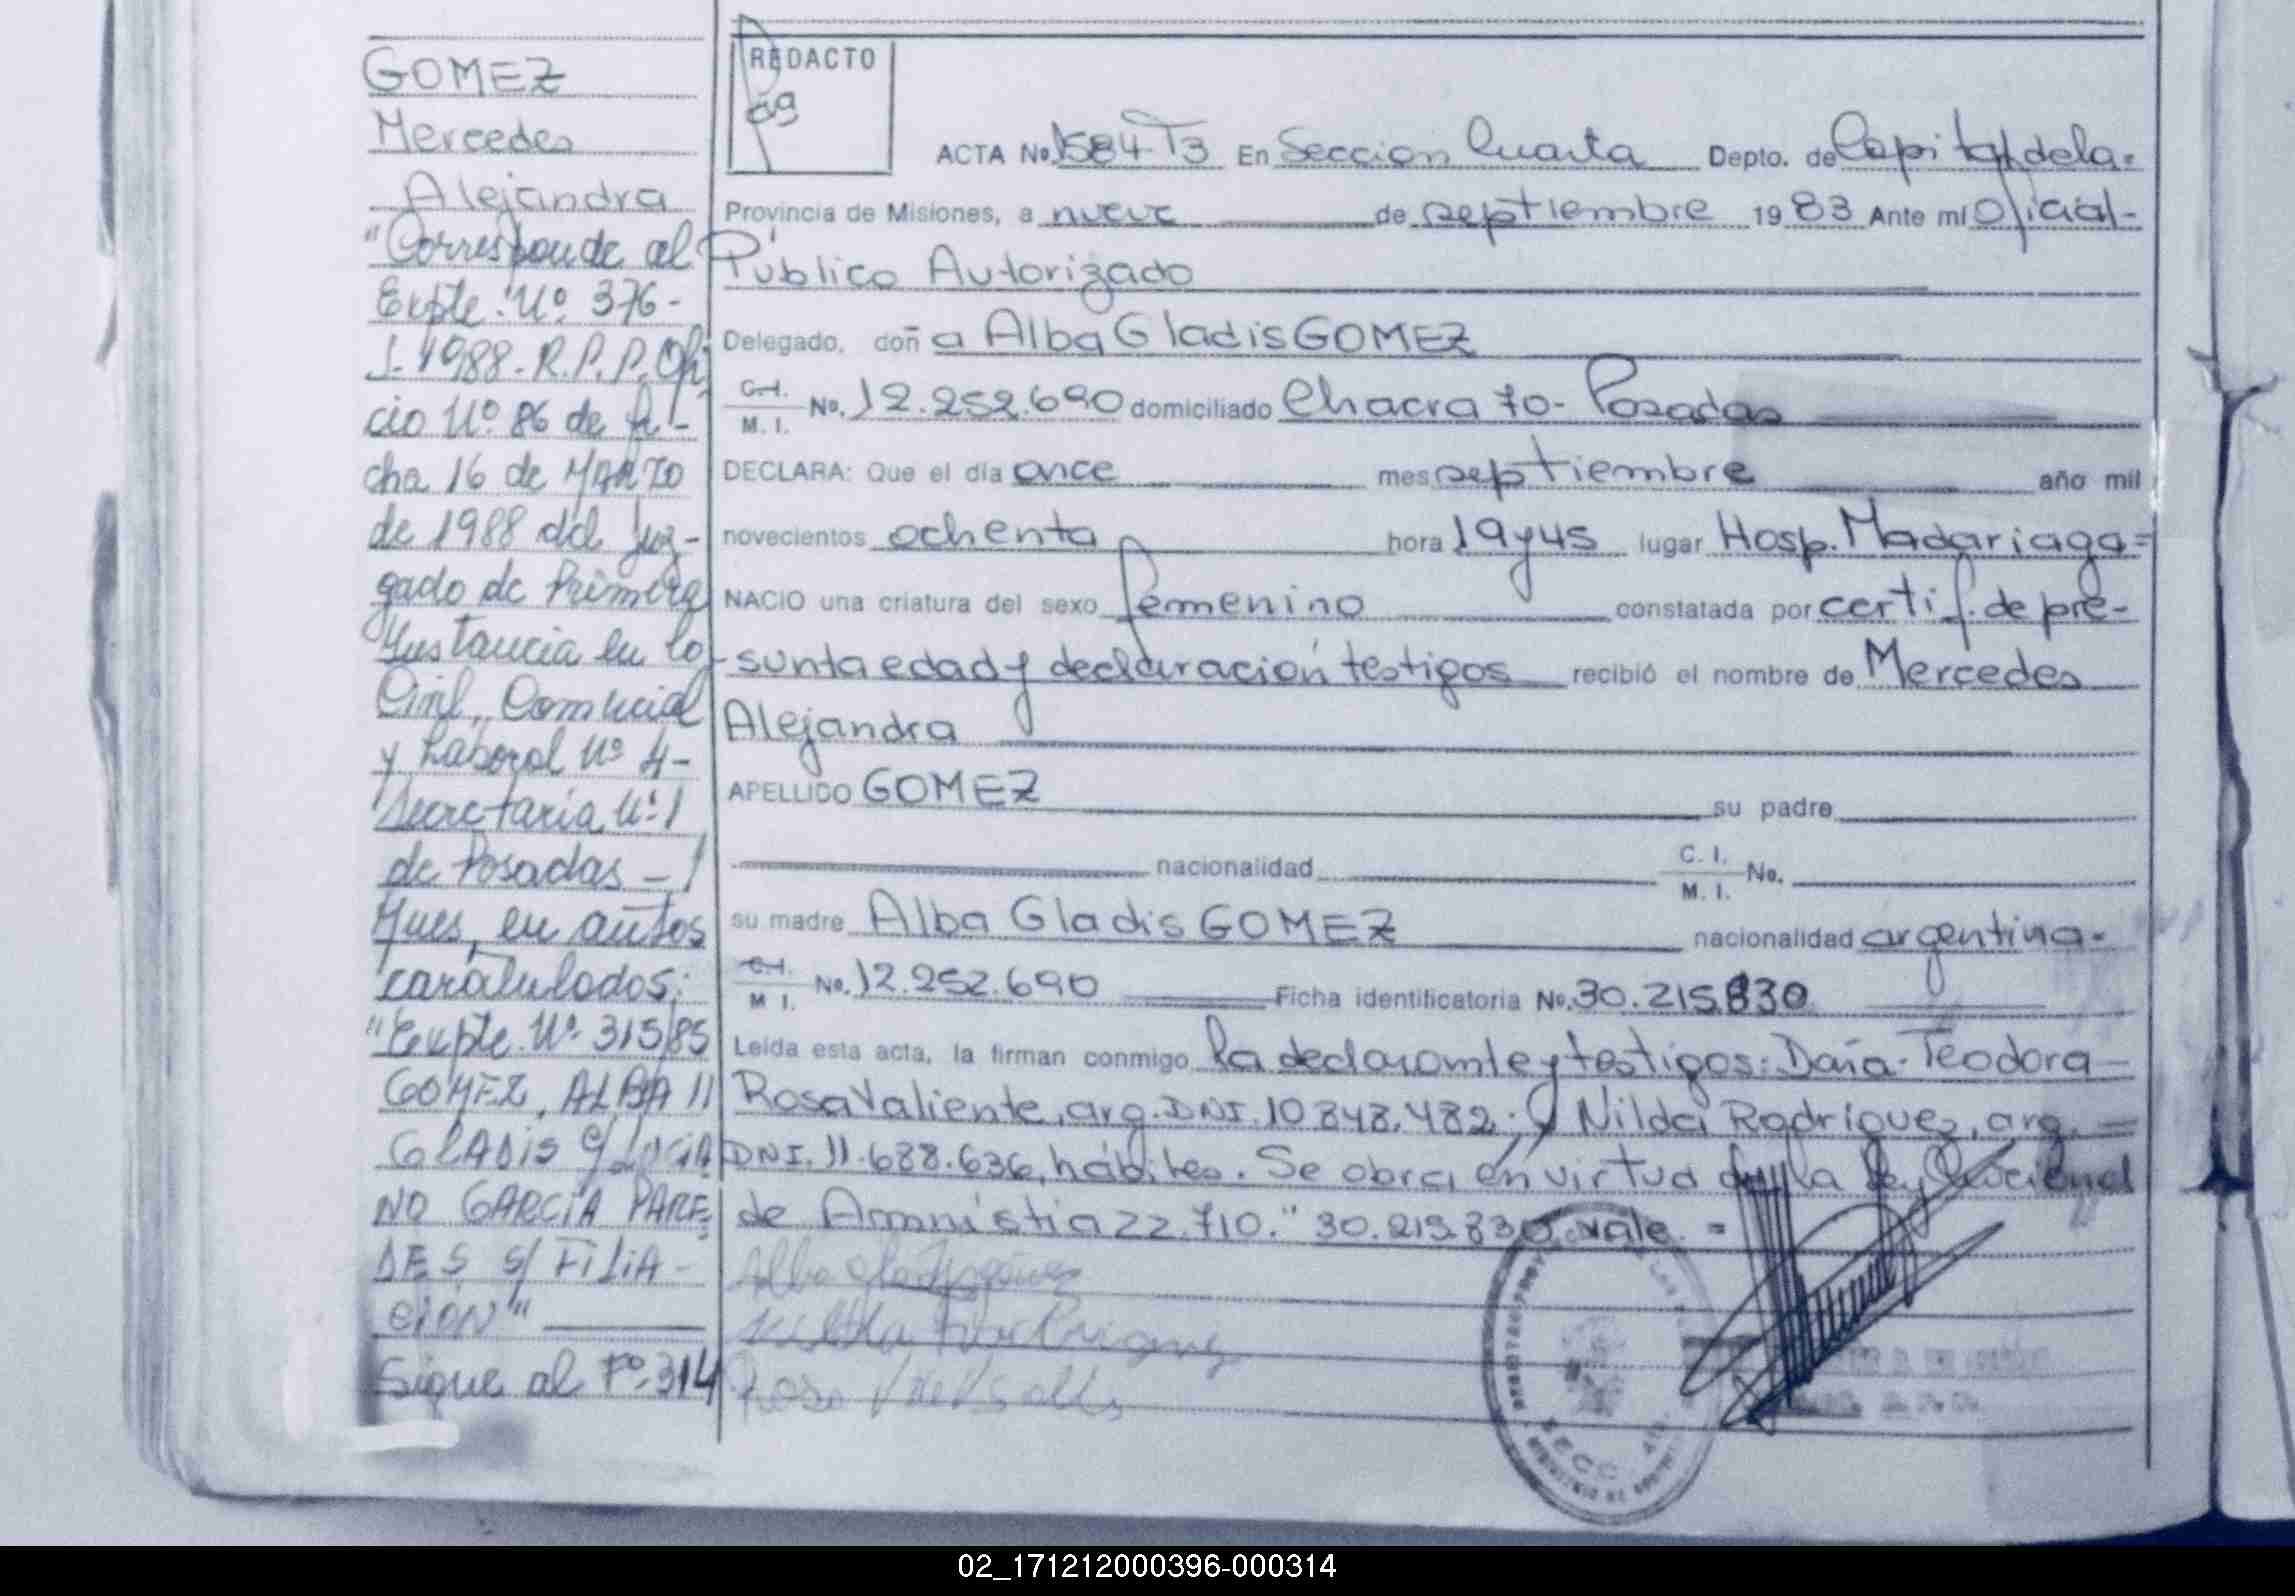 GOMEZ
Mercedes
Alejandra
"Corresponde al
Expte. Nº 376-
1988- R.P.P. Ofi
cio Nº 86 de fe-
cha 16 de MARZO
de 1988 del Juz-
gado de Primera
Instancia en lo
Civil, Comercial
y Laboral Nº 4-
Secretaria Nº 1
de Posadas -/
Mnes, en autos
caratulados:
"Expte. Nº 315/85
GOMEZ, ALBA //
GLADIS c/ LUCIA
NO GARCÍA PARE
DES s/ FILIA-
CIÓN"
Sigue al Fº 314
REDACTO
ACTA No. 1584 T3 En Sección Cuarta Depto. de Capital de la-
Provincia de Misiones, a nueve de septiembre 1983 Ante mí Oficial-
Público Autorizado
Delegado, doña Alba Gladis GOMEZ
C.I. M. I. No. 12.252.690 domiciliado Chacra 70- Posadas
DECLARA: Que el día once mes septiembre año mil
novecientos ochenta hora 19 y 45 lugar Hosp. Madariaga=
NACIO una criatura del sexo femenino constatada por certif. de pre-
sunta edad y declaración testigos recibió el nombre de Mercedes
Alejandra
APELLIDO GOMEZ su padre
nacionalidad C. I. M. I. No.
su madre Alba Gladis GOMEZ nacionalidad argentina-
C.I. M I. No. 12.252.690 Ficha identificatoria No. 30.215.830
Leída esta acta, la firman conmigo la declarante y testigos: Doña Teodora
Rosa Valiente, arg. DNI. 10.848.482; y Nilda Rodríguez, arg. =
DNI. 11.688.636, hábiles. Se obra en virtud de la Ley Nacional
de Amnistia 22.710." 30.215.830 vale. =
SECC.
02_171212000396-000314